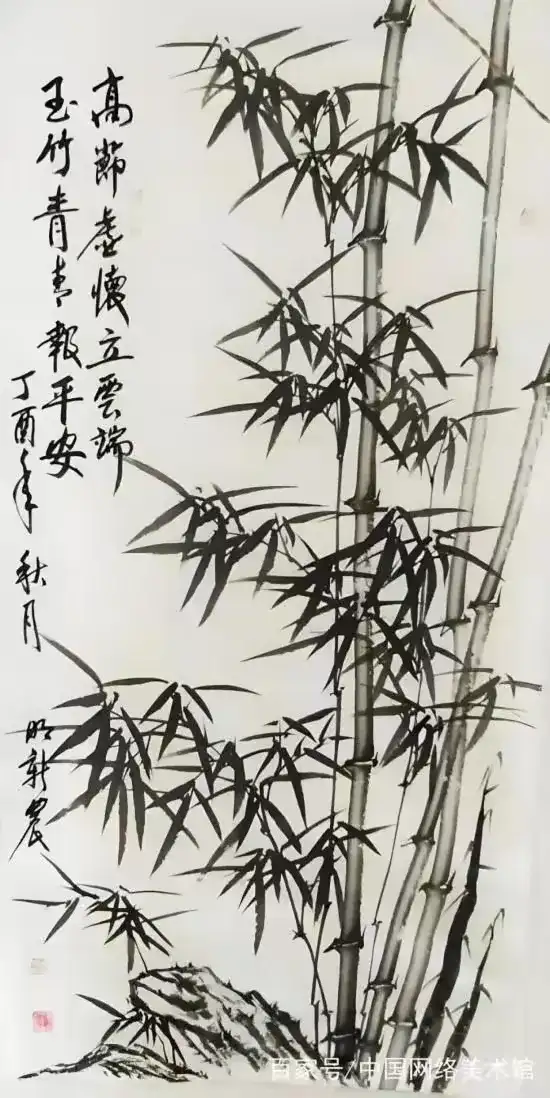 高節虛懷立雲端
玉竹青青報平安
丁酉年秋月
明新農
百家号/中国网络美术馆